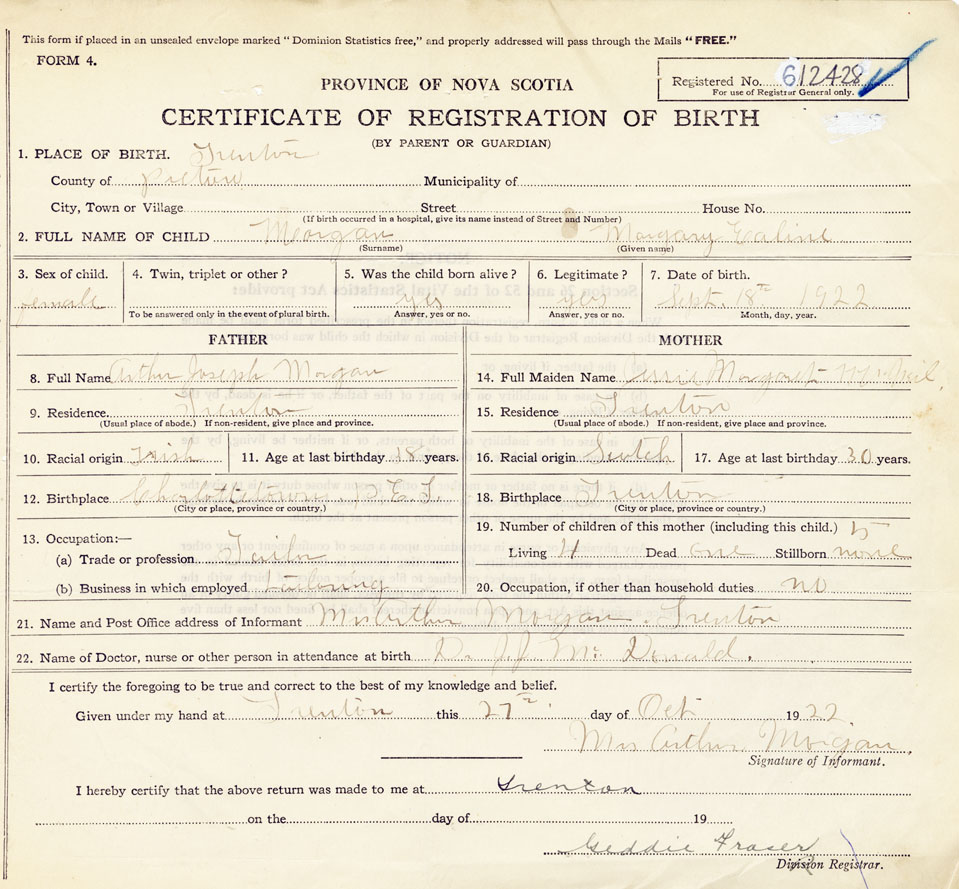 This form if placed in an unsealed envelope marked "Dominion Statistics free," and properly addressed will pass through the Mails "FREE."
FORM 4.
Registered No. 612428
For use of Registrar General only.
PROVINCE OF NOVA SCOTIA
CERTIFICATE OF REGISTRATION OF BIRTH
(BY PARENT OR GUARDIAN)
1. PLACE OF BIRTH. Trenton
County of Pictou Municipality of
City, Town or Village Street House No.
(If birth occurred in a hospital, give its name instead of Street and Number)
2. FULL NAME OF CHILD Morgan Margary Ealine
(Surname) (Given name)
3. Sex of child. 4. Twin, triplet or other? 5. Was the child born alive? 6. Legitimate? 7. Date of birth.
female yes yes Sept. 18th 1922
To be answered only in the event of plural birth. Answer, yes or no. Answer, yes or no. Month, day, year.
FATHER MOTHER
8. Full Name Arthur Joseph Morgan 14. Full Maiden Name Margaret
9. Residence. Trenton 15. Residence Trenton
(Usual place of abode.) If non-resident, give place and province. (Usual place of abode.) If non-resident, give place and province.
10. Racial origin Irish 11. Age at last birthday years. 16. Racial origin Scotch 17. Age at last birthday 30 years.
12. Birthplace Charlottetown P.E.I. 18. Birthplace Trenton
(City or place, province or country,) (City or place, province or country.)
13. Occupation:— 19. Number of children of this mother (including this child.) 5
(a) Trade or profession Tailor Living 4 Dead one Stillborn none
(b) Business in which employed Tailoring 20. Occupation, if other than household duties no
21. Name and Post Office address of Informant Mrs Arthur Morgan. Trenton
22. Name of Doctor, nurse or other person in attendance at birth Dr J.J. McDonald.
I certify the foregoing to be true and correct to the best of my knowledge and belief.
Given under my hand at Trenton this 27th day of Oct 1922
Mrs Arthur Morgan
Signature of Informant.
I hereby certify that the above return was made to me at Trenton
on the day of 19
Geddie Fraser
Division Registrar.